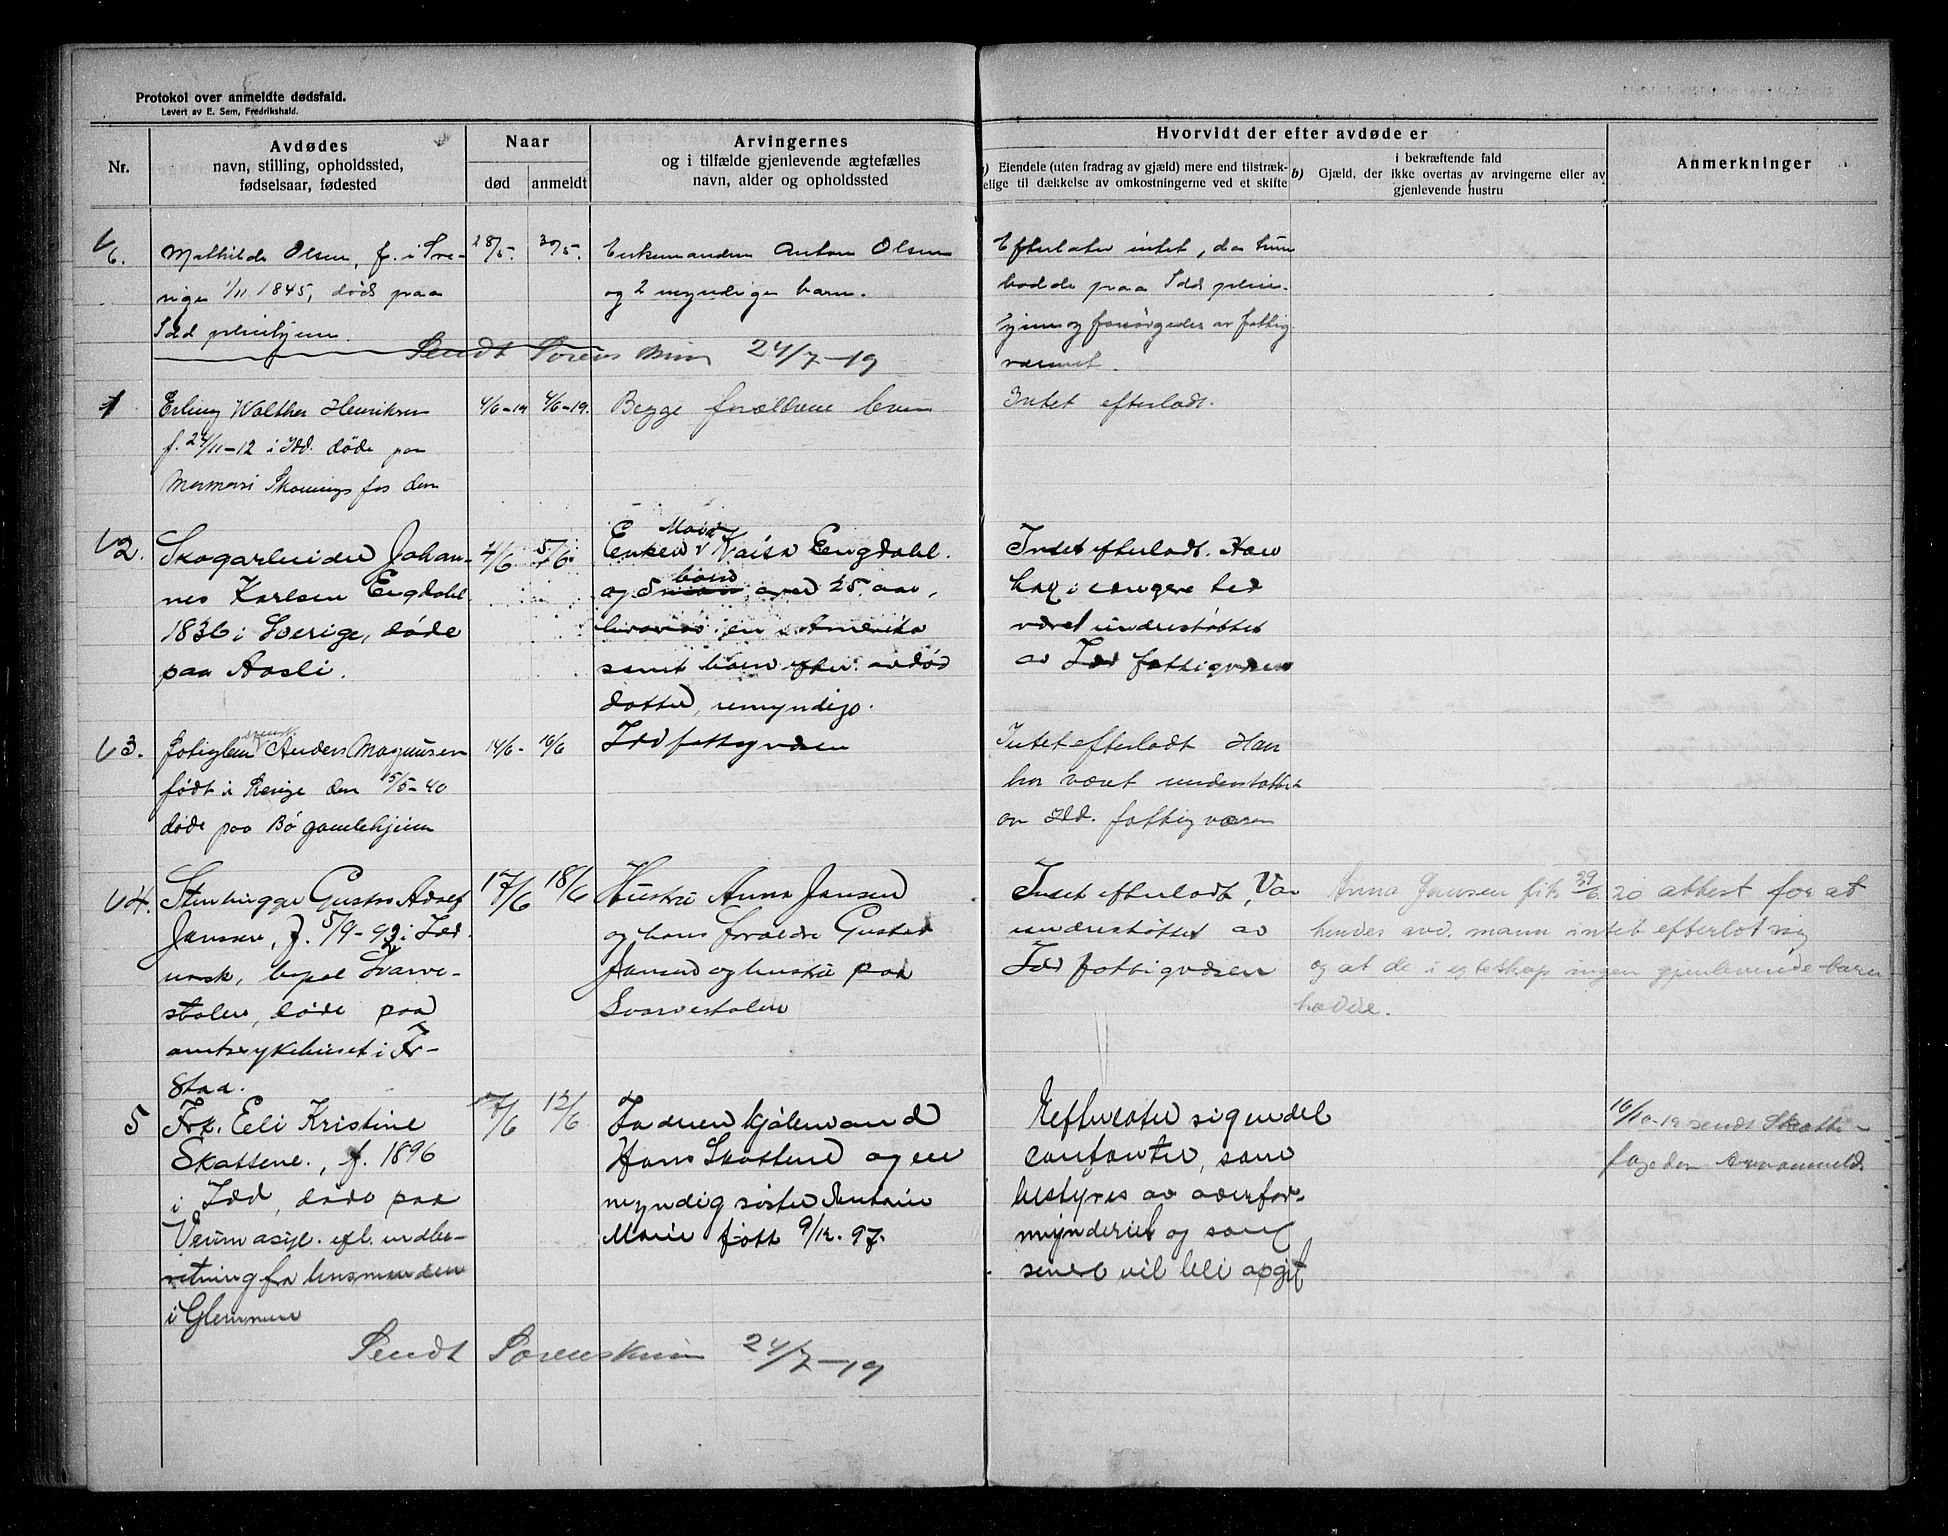 Protokol over anmeldte dødsfald.
Levert av E. Sem, Fredrikshald.
Nr.
Avdødes
navn, stilling, opholdssted,
fødselsaar, fødested
Naar
død
anmeldt
Arvingernes
og i tilfælde gjenlevende ægtefælles
navn, alder og opholdssted
Hvorvidt der efter avdøde er
Eiendele (uten fradrag av gjæld) mere end tilstræk-
kelige til dækkelse av omkostningerne ved et skifte
b) i bekræftende fald
Gjæld, der ikke overtas av arvingerne eller av
gjenlevende hustru
Anmerkninger
6.
Mathilde Olsen, f. i Sve-
rige 1/11 1845, død paa
Idd pleiehjem.
28/5.
30/5.
Enkemanden Anton Olsen
og 2 myndige barn.
Efterlater intet, da hun
bodde paa Idd pleie-
hjem og forsørgedes av fattig-
væsnet.
Sendt Sorenskriv 24/7-19
1
Erling Walther Henriksen
f. 24/11-12 i Idd. døde paa
fos den
4/6-19
4/6-19.
Begge forældrene lever
Intet efterladt.
2.
Skogarbeider Johan-
nes Karlsen Engdahl
1836 i Sverige, døde
paa Aasli.
4/6
5/6.
Enken Maja Kaisa Engdahl.
og 5 barn over 25 aar,
hvorav en i Amerika
samt barn efter avdød
datter, umyndige.
Intet efterladt. Han
har i længere tid
været understøttet
av Idd fattigvæsen
3.
svensk
Anders Magnusen
født i Sverige den 15/5-40
døde paa Bø gamlehjem
14/6-
16/6
Idd fattigvæsen
Intet efterladt Han
har været understøttet
av Idd. fattigvæsen
4.
Stenhugger Gustav Adolf
Jansen, f. 5/9-92 i Idd.
norsk, bopæl Svarve-
stolen, døde paa
amtsykehuset i Fr-
stad.
17/6
18/6
Hustru Anna Jansen
og hans forældre Gustav
Jansen og hustru paa
Svarvestolen
Intet efterladt, Var
understøttet av
Idd fattigvæsen
Anna Jansen fik 29/6 20 attest for at
hendes avd. mann intet efterlot sig
og at de i egteskap ingen gjenlevende barn
havde.
5
Frk. Eli Kristine
Skattene, f. 1896
i Idd, døde paa
Veum asyl. efl. indbe-
retning fra lensmanden
i Glemmen
17/6
Faderen kjølemand
Hans Skattene og en
myndig søster Antonie
Marie født 9/12. 97.
Efterlater sig endel
contanter, som
bestyres av overfor-
mynderiet og som
senere vil bli opgit
16/10-19 sendt Skatte-
fogeden
Sendt Sorenskriv 24/7-19